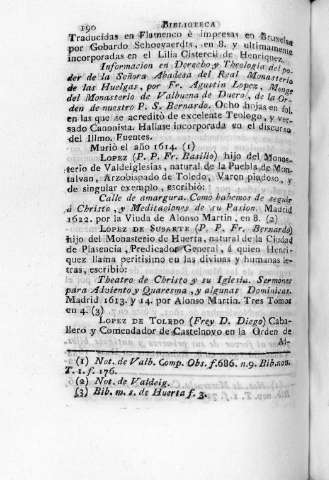 190 BIBLIOTECA
Traducidas en Flamenco è impresas en Bruselas
por Gobardo Schoevaerdts, en 8. y ultimamente
incorporadas en el Lilia Cistercii de Henriquez.
Informacion en Derecho y Theologia del po-
der de la Señora Abadesa del Real Monasterio
de las Huelgas, por Fr. Agustin Lopez, Monge
del Monasterio de Valbuena de Duero, de la Or-
den de nuestro P. S. Bernardo. Ocho hojas en fol.
en las que se acreditò de excelente Teologo, y ver-
sado Canonista. Hallase incorporada en el discurso
del Illmo. Fuentes.
Muriò el año 1614. (1)
LOPEZ (P. P. Fr. Basilio) hijo del Monas-
terio de Valdeiglesias, natural de la Puebla de Mon-
talvan, Arzobispado de Toledo, Varon piadoso, y
de singular exemplo, escribiò:
Calle de amargura. Como habemos de seguir
á Christo, y Meditaciones de su Pasion. Madrid
1622. por la Viuda de Alonso Martin, en 8. (2)
LOPEZ DE SUSARTE (P. P. Fr. Bernardo)
hijo del Monasterio de Huerta, natural de la Ciudad
de Plasencia, Predicador General, á quien Henri-
quez llama peritisimo en las divinas y humanas le-
tras, escribiò:
Theatro de Christo y su Iglesia. Sermones
para Adviento y Quaresma, y algunas Dominicas.
Madrid 1613. y 14. por Alonso Martin. Tres Tomos
en 4. (3)
LOPEZ DE TOLEDO (Frey D. Diego) Caba-
llero y Comendador de Castelnovo en la Orden de
Al-
(1) Not. de Valb. Comp. Obs. f. 686. n. 9. Bib. nov.
T. 1. f. 176.
(2) Not. de Valdeig.
(3) Bib. m. s. de Huerta f. 3.